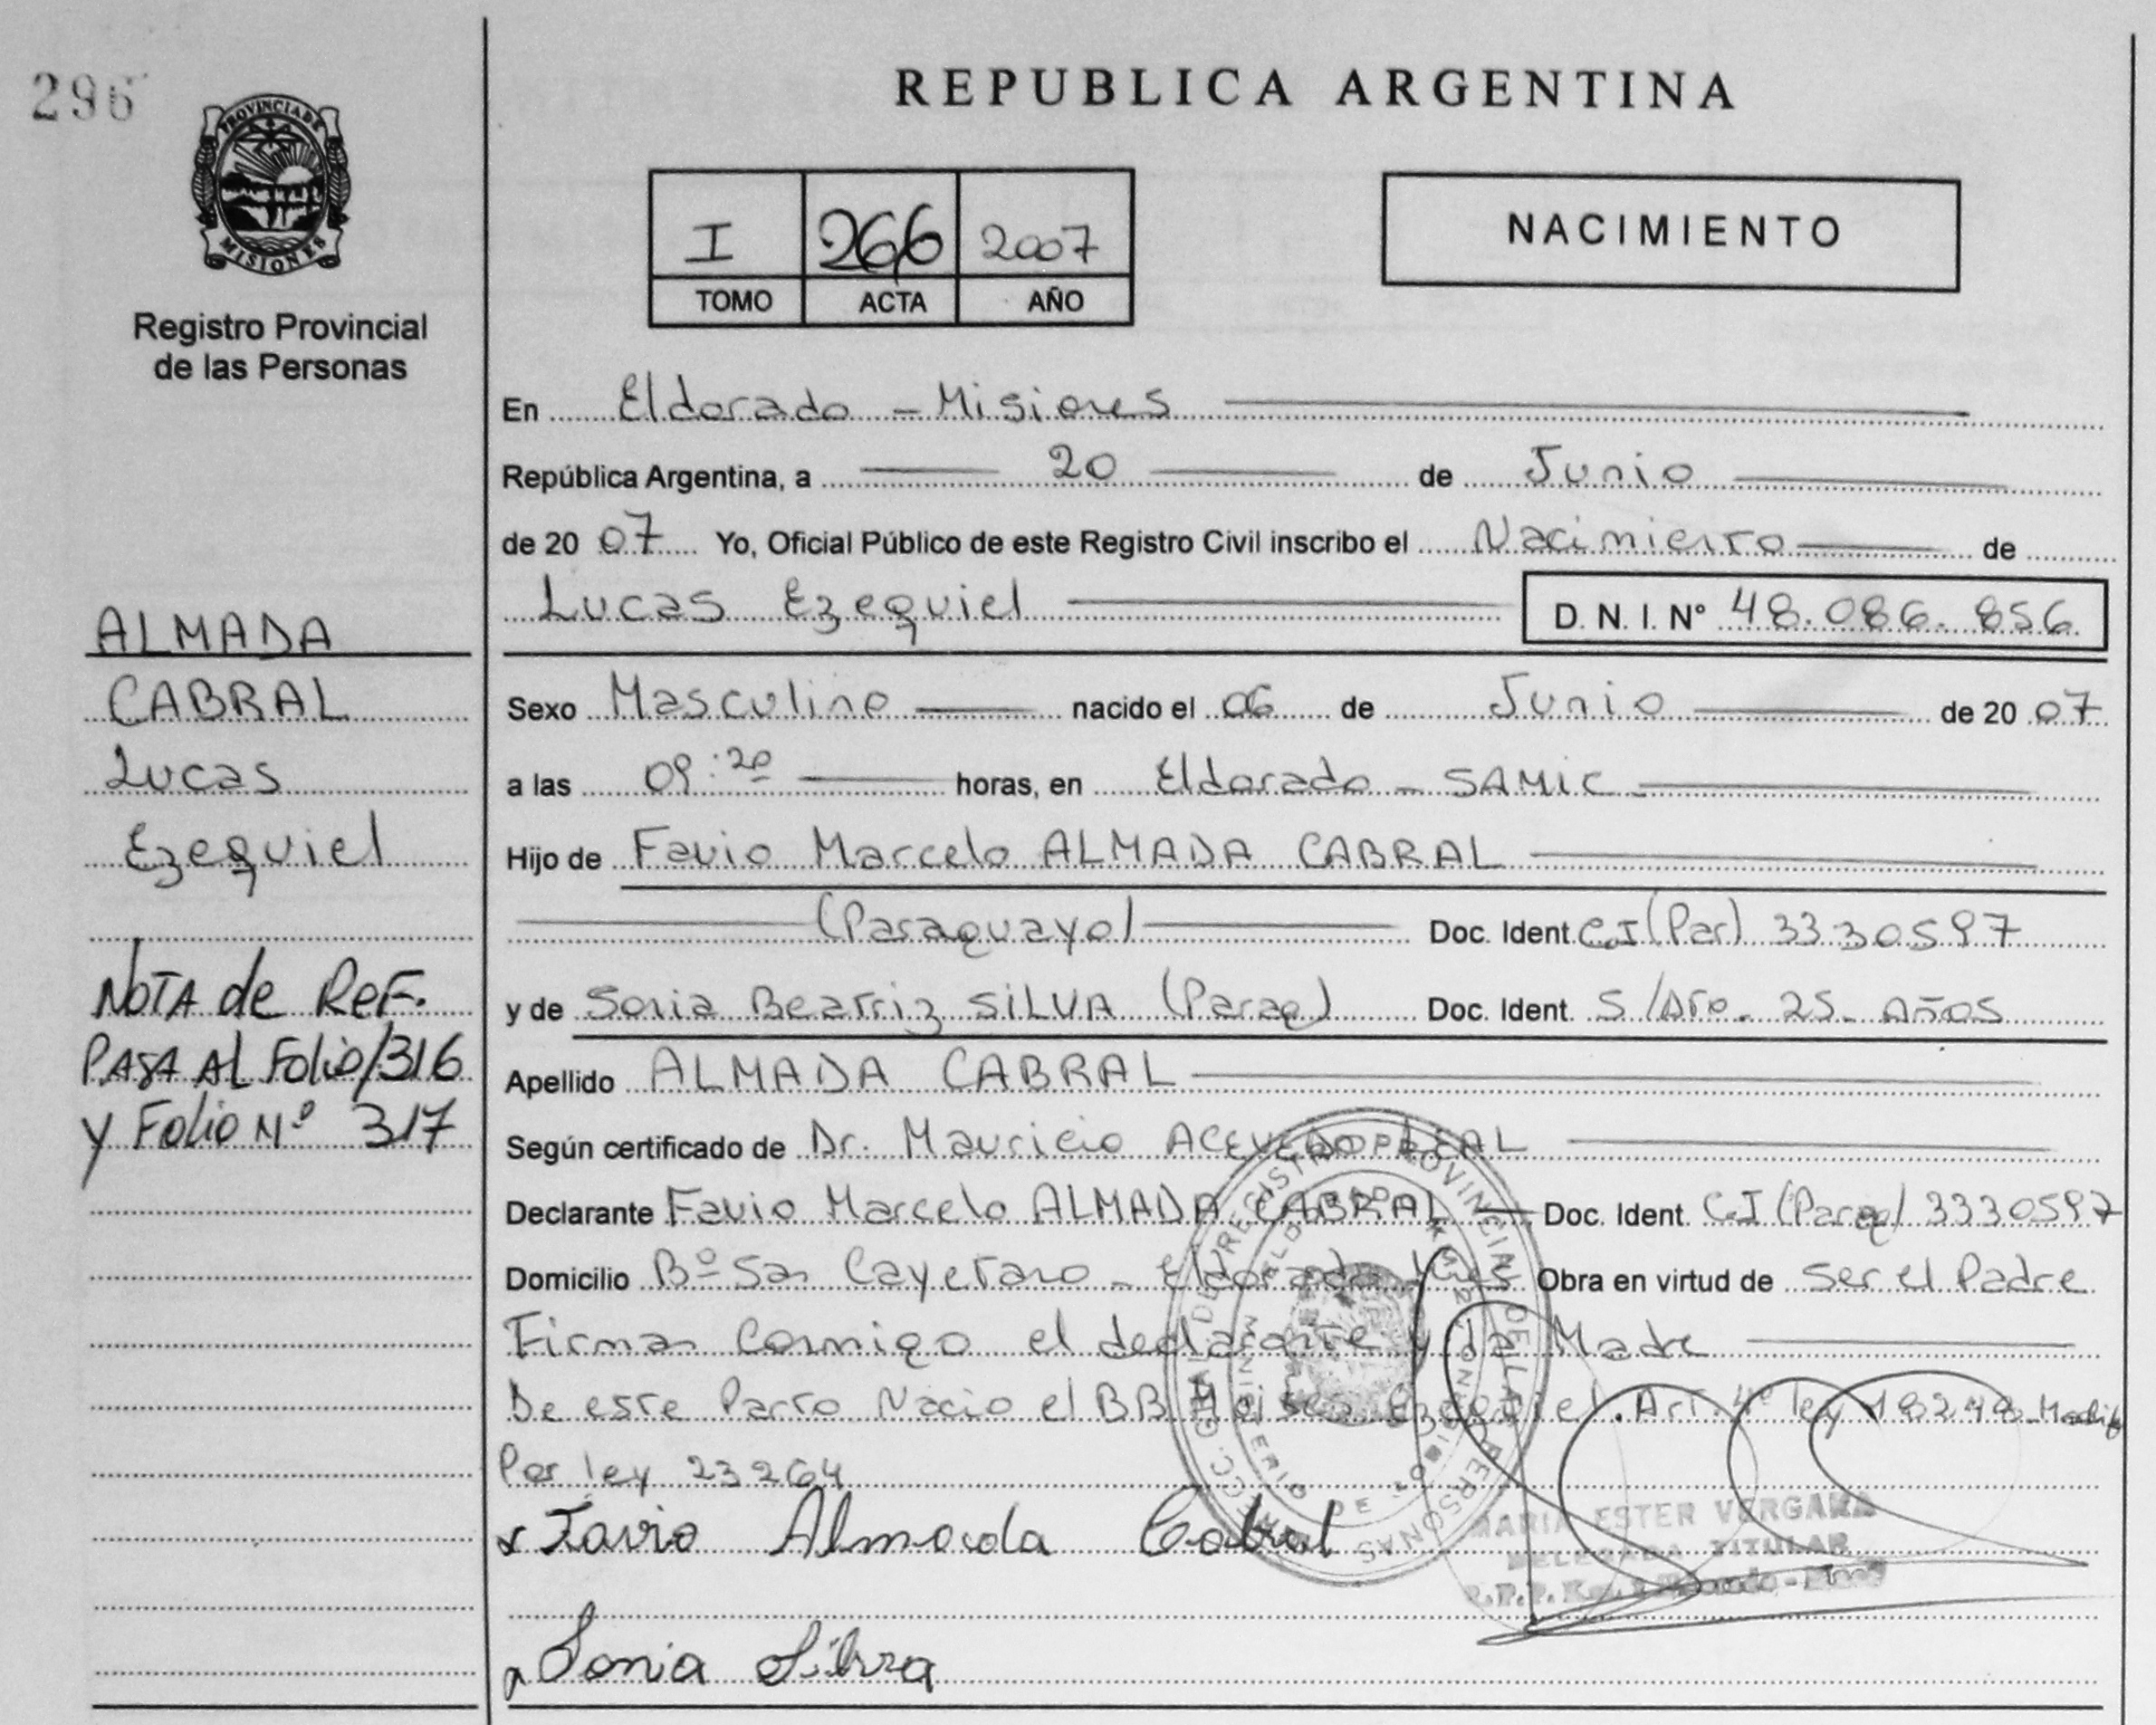 296
PROVINCIA DE
MISIONES
Registro Provincial
de las Personas
REPUBLICA ARGENTINA
I 266 2007
TOMO ACTA AÑO
NACIMIENTO
En Eldorado - Misiones
República Argentina, a 20 de Junio
de 20 07 Yo, Oficial Público de este Registro Civil inscribo el Nacimiento de
Lucas Ezequiel D. N. I. Nº 48.086.856
Sexo Masculino nacido el 06 de Junio de 20 07
a las 09:20 horas, en Eldorado - SAMIC
Hijo de Favio Marcelo ALMADA CABRAL
(Paraguayo) Doc. Ident. C.I (Par) 3330597
y de Sonia Beatriz SILVA (Parag) Doc. Ident. S/Dto. 25 Años
Apellido ALMADA CABRAL
Según certificado de Dr. Mauricio ACEVEDO LEAL
Declarante Favio Marcelo ALMADA CABRAL Doc. Ident. C.I (Parag) 3330597
Domicilio Bº San Cayetano - Eldorado Obra en virtud de Ser el Padre
Firman Conmigo el declarante y la Madre
De este Parto Nacio el BB Ezequiel. Art. 4º ley 18248 Modif
Por ley 23264
x Favio Almada Cabral
Sonia Silva
MARIA ESTER VERGARA
DELEGADA TITULAR
ALMADA
CABRAL
Lucas
Ezequiel
NOTA de ReF.
PASA AL Folio/316
y Folio Nº 317